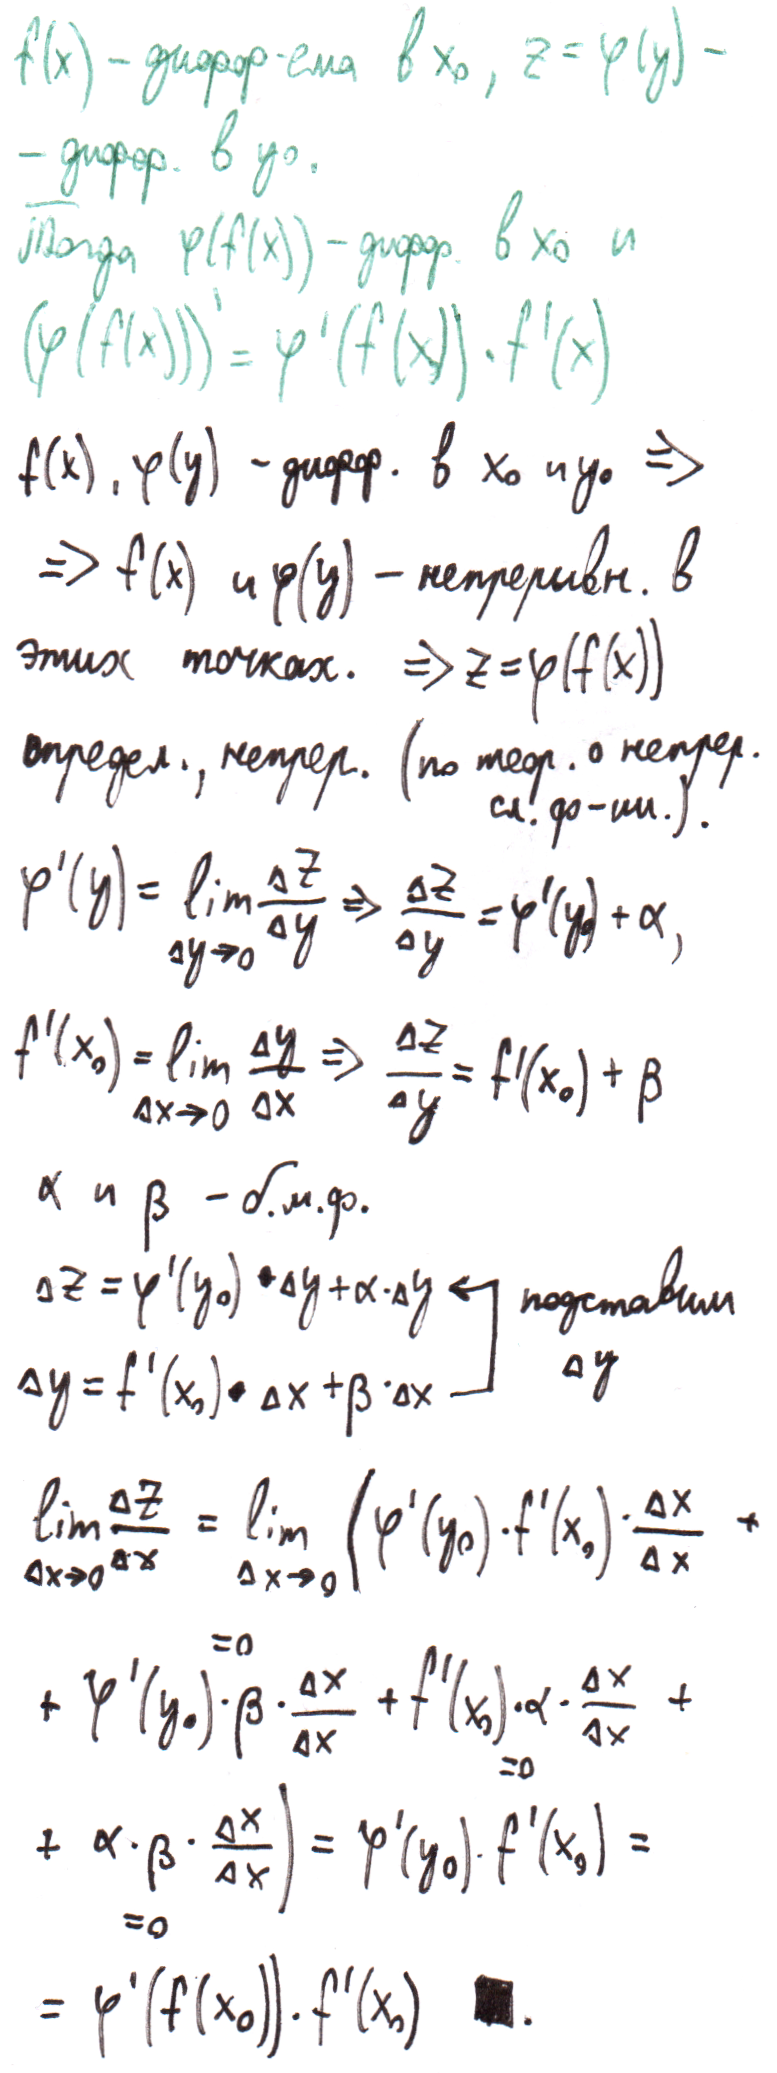 f(x) – диффер-ема в x₀, z = φ(y) –
– диффер. в y₀.
Тогда φ(f(x)) – диффер. в x₀ и
(φ(f(x)))' = φ'(f(x)) · f'(x)
f(x), φ(y) – диффер. в x₀ и y₀ =>
=> f(x) и φ(y) – непрерывн. в
этих точках. => z = φ(f(x))
определ., непрер. (по теор. о непрер.
сл. ф-ии.).
φ'(y) = lim Δz/Δy => Δz/Δy = φ'(y₀) + α,
Δy→0
f'(x₀) = lim Δy/Δx => Δz/Δy = f'(x₀) + β
Δx→0
α и β – б.м.ф.
Δz = φ'(y₀) · Δy + α · Δy ← подставим
Δy = f'(x₀) · Δx + β · Δx Δy
lim Δz/Δx = lim (φ'(y₀) · f'(x₀) · Δx/Δx +
Δx→0 Δx→0
=0
+ φ'(y₀) · β · Δx/Δx + f'(x₀) · α · Δx/Δx +
=0
+ α · β · Δx/Δx) = φ'(y₀) · f'(x₀) =
=0
= φ'(f(x₀)) · f'(x₀) ■.